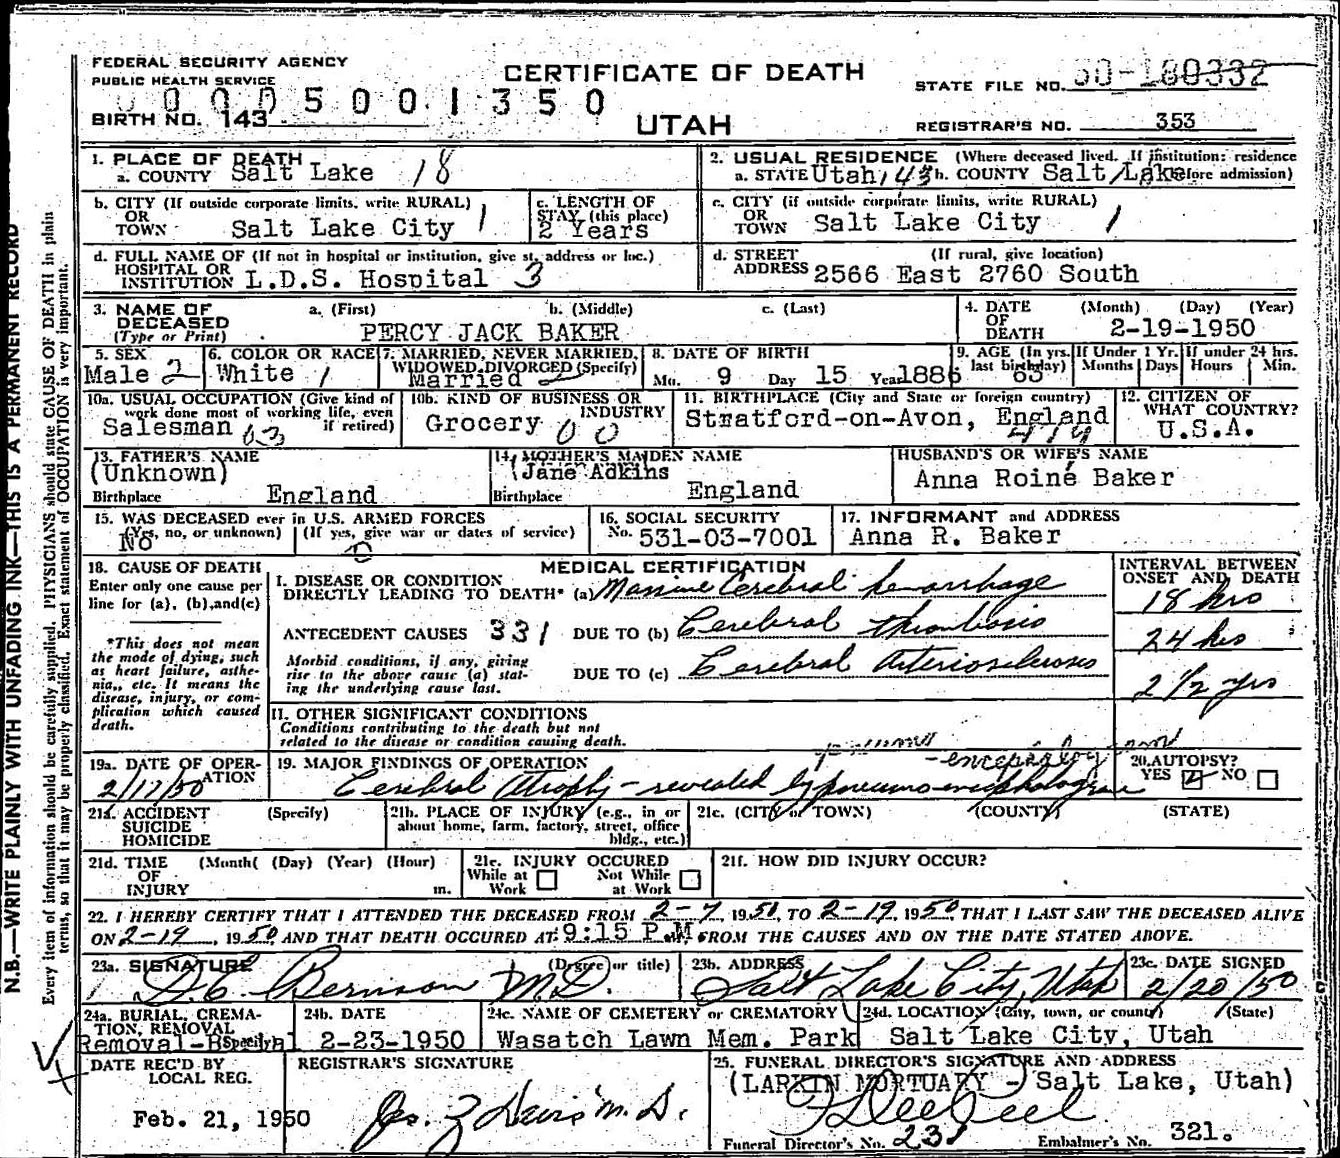 FEDERAL SECURITY AGENCY
PUBLIC HEALTH SERVICE
CERTIFICATE OF DEATH
STATE FILE NO. 50-180332
00005001350
BIRTH NO. 143
UTAH
REGISTRAR'S NO. 353
1. PLACE OF DEATH
a. COUNTY Salt Lake 18
2. USUAL RESIDENCE (Where deceased lived. If institution: residence
a. STATE Utah, 43 b. COUNTY Salt Lake before admission)
b. CITY (If outside corporate limits, write RURAL)
OR
TOWN Salt Lake City 1
c. LENGTH OF
STAY (this place)
2 Years
c. CITY (if outside corporate limits, write RURAL)
OR
TOWN Salt Lake City 1
d. FULL NAME OF (If not in hospital or institution, give st. address or loc.)
HOSPITAL OR
INSTITUTION L.D.S. Hospital 3
d. STREET (If rural, give location)
ADDRESS 2566 East 2760 South
3. NAME OF DECEASED (Type or Print)
a. (First) b. (Middle) c. (Last)
PERCY JACK BAKER
4. DATE OF DEATH (Month) (Day) (Year)
2-19-1950
5. SEX
Male 2
6. COLOR OR RACE
White 1
7. MARRIED, NEVER MARRIED,
WIDOWED, DIVORCED (Specify)
Married 2
8. DATE OF BIRTH
Mo. 9 Day 15 Year 1886
9. AGE (In yrs. last birthday) 63
If Under 1 Yr. Months Days
If under 24 hrs. Hours Min.
10a. USUAL OCCUPATION (Give kind of
work done most of working life, even
if retired)
Salesman 63
10b. KIND OF BUSINESS OR
INDUSTRY
Grocery 00
11. BIRTHPLACE (City and State or foreign country)
Stratford-on-Avon, England
414
12. CITIZEN OF
WHAT COUNTRY?
U.S.A.
13. FATHER'S NAME
(Unknown)
Birthplace England
14. MOTHER'S MAIDEN NAME
(Jane Adkins
Birthplace England
HUSBAND'S OR WIFE'S NAME
Anna Roiné Baker
15. WAS DECEASED ever in U.S. ARMED FORCES
(Yes, no, or unknown) (If yes, give war or dates of service)
No 0
16. SOCIAL SECURITY
No. 531-03-7001
17. INFORMANT and ADDRESS
Anna R. Baker
18. CAUSE OF DEATH
Enter only one cause per
line for (a), (b), and (c)
*This does not mean
the mode of dying, such
as heart failure, asthe-
nia, etc. It means the
disease, injury, or com-
plication which caused
death.
MEDICAL CERTIFICATION
INTERVAL BETWEEN
ONSET AND DEATH
I. DISEASE OR CONDITION
DIRECTLY LEADING TO DEATH* (a) Massive Cerebral hemorrhage 18 hrs
ANTECEDENT CAUSES 331 DUE TO (b) Cerebral thrombosis 24 hrs
Morbid conditions, if any, giving
rise to the above cause (a) stat-
ing the underlying cause last.
DUE TO (c) Cerebral Arteriosclerosis 2 1/2 yrs
II. OTHER SIGNIFICANT CONDITIONS
Conditions contributing to the death but not
related to the disease or condition causing death.
pneumo
-encephalogram
19a. DATE OF OPER-
ATION
2/17/50
19. MAJOR FINDINGS OF OPERATION
Cerebral Atrophy - revealed by pneumoencephalogram
20. AUTOPSY?
YES NO
21a. ACCIDENT (Specify)
SUICIDE
HOMICIDE
21b. PLACE OF INJURY (e.g., in or
about home, farm, factory, street, office
bldg., etc.)
21c. (CITY or TOWN) (COUNTY) (STATE)
21d. TIME (Month( (Day) (Year) (Hour)
OF
INJURY m.
21e. INJURY OCCURED
While at Work Not While at Work
21f. HOW DID INJURY OCCUR?
22. I HEREBY CERTIFY THAT I ATTENDED THE DECEASED FROM 2-7, 1950, TO 2-19, 1950 THAT I LAST SAW THE DECEASED ALIVE
ON 2-19, 1950, AND THAT DEATH OCCURED AT 9:15 P.M. FROM THE CAUSES AND ON THE DATE STATED ABOVE.
23a. SIGNATURE (Degree or title)
D.C. Bernson M.D.
23b. ADDRESS
Salt Lake City, Utah
23c. DATE SIGNED
2/20/50
24a. BURIAL, CREMA-
TION, REMOVAL
(Specify)
Removal-Burial
24b. DATE
2-23-1950
24c. NAME OF CEMETERY or CREMATORY
Wasatch Lawn Mem. Park
24d. LOCATION (City, town, or county) (State)
Salt Lake City, Utah
DATE REC'D BY
LOCAL REG.
Feb. 21, 1950
REGISTRAR'S SIGNATURE
25. FUNERAL DIRECTOR'S SIGNATURE AND ADDRESS
(LARKIN MORTUARY - Salt Lake, Utah)
Funeral Director's No. 231 Embalmer's No. 321.
N.B.—WRITE PLAINLY WITH UNFADING INK—THIS IS A PERMANENT RECORD
Every item of information should be carefully supplied. PHYSICIANS should state CAUSE OF DEATH in plain
terms, so that it may be properly classified. Exact statement of OCCUPATION is very important.